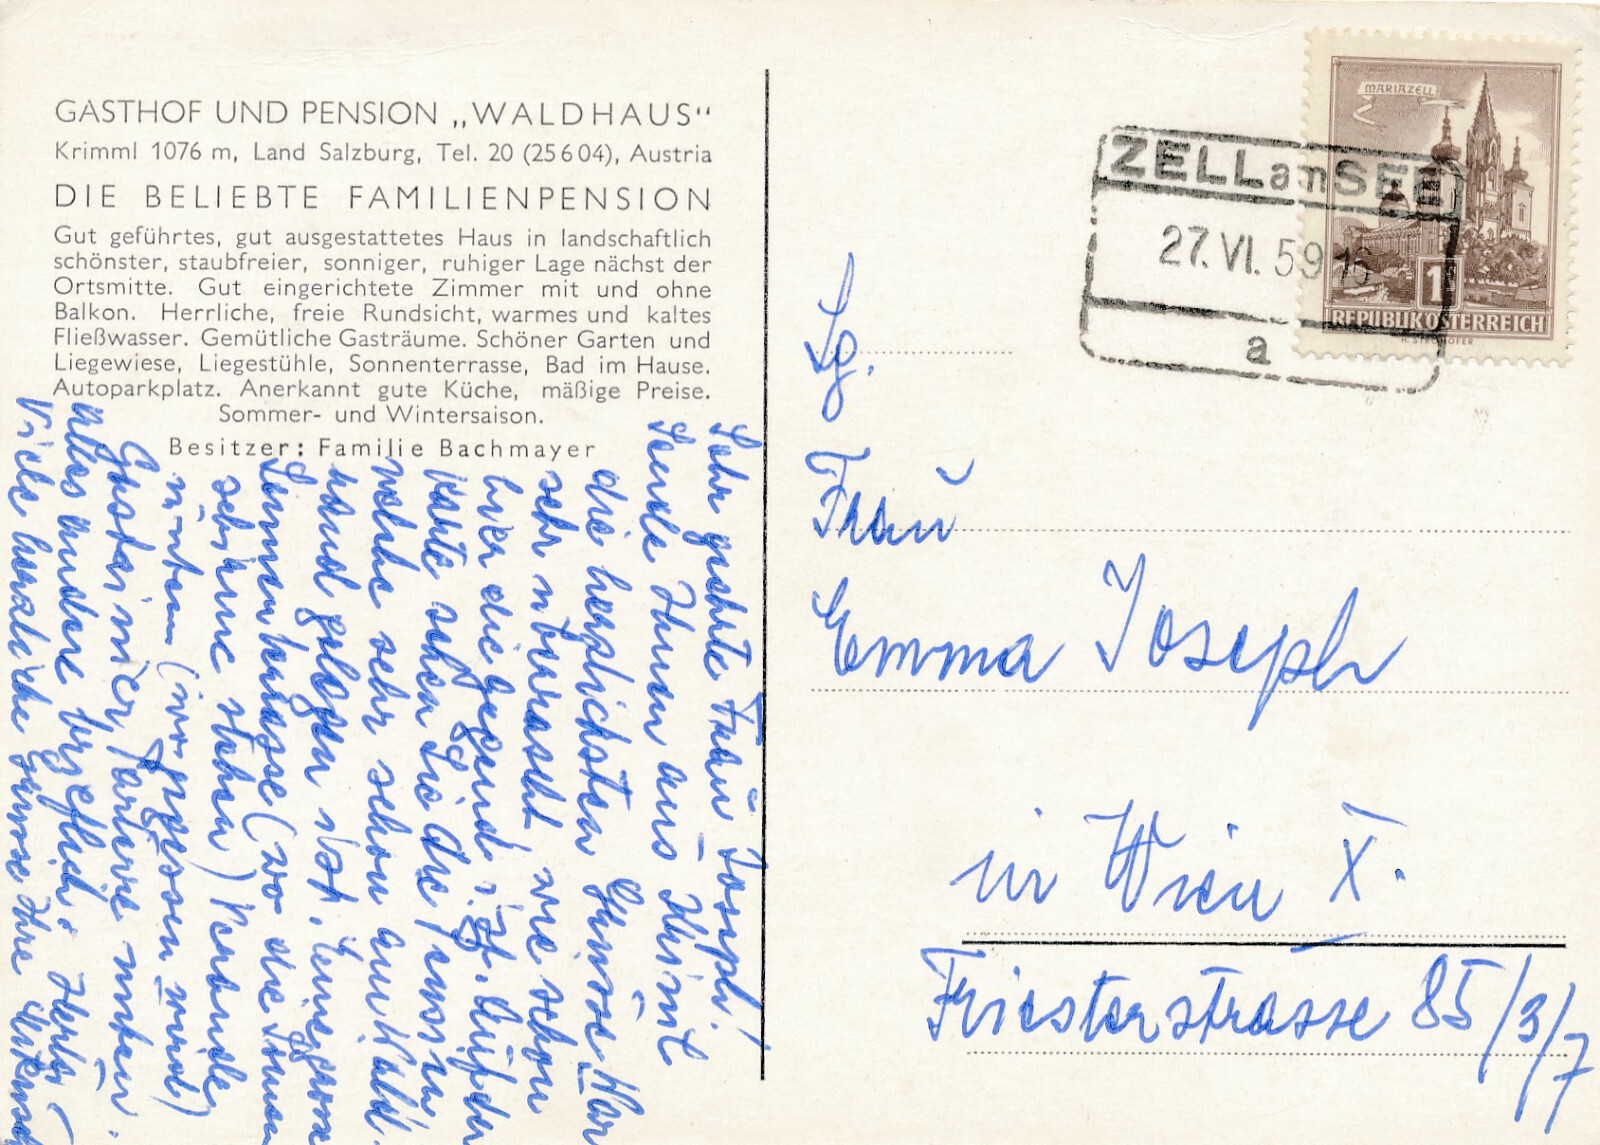 GASTHOF UND PENSION „WALDHAUS“
Krimml 1076 m, Land Salzburg, Tel. 20 (25604), Austria
DIE BELIEBTE FAMILIENPENSION
Gut geführtes, gut ausgestattetes Haus in landschaftlich
schönster, staubfreier, sonniger, ruhiger Lage nächst der
Ortsmitte. Gut eingerichtete Zimmer mit und ohne
Balkon. Herrliche, freie Rundsicht, warmes und kaltes
Fließwasser. Gemütliche Gasträume. Schöner Garten und
Liegewiese, Liegestühle, Sonnenterrasse, Bad im Hause.
Autoparkplatz. Anerkannt gute Küche, mäßige Preise.
Sommer- und Wintersaison.
Besitzer: Familie Bachmayer
Sehr geehrte Frau Joseph!
Sende Ihnen aus Kriml
die herzlichsten Grüsse War
sehr überrascht wie schön
hier die Gegend ist. Auf der
Karte sehen Sie die Pension
welche sehr schön am Wald
rand gelegen ist. Eine grosse
Sonnenterrasse (wo die Sonnen
schirme stehen) Veranda
unten (wo gegessen wird)
Gastzimmer Parterre unten.
Alles andere brieflich.
Viele herzliche Grüsse Ihre
MARIAZELL
1
REPUBLIK ÖSTERREICH
ZELL am SEE
27. VI. 59
a
Frau
Emma Joseph
in Wien X.
Triesterstrasse 85/3/7